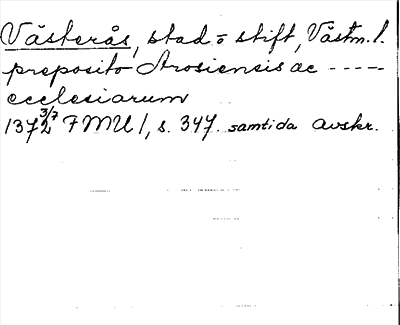 Västerås, stad o stift, Västm. l.
preposito Arosiensis ac -----
ecclesiarum
1372 3/7 FMU 1, s. 347. samtida avskr.